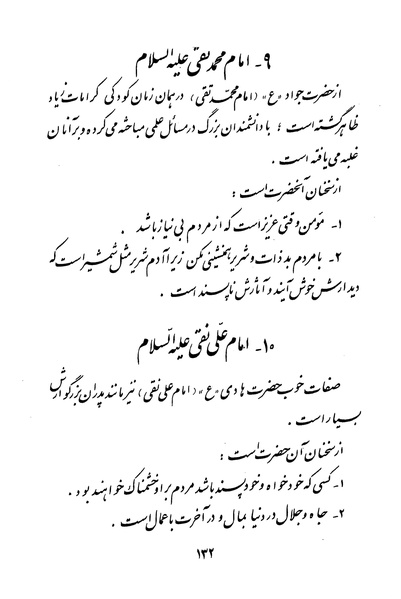 ۹- امام محمد تقی علیه السلام
از حضرت جواد «ع» (امام محمّد تقی) در همان زمان کودکی کرامات زیاد
ظاهر گشته است؛ با دانشمندان بزرگ در مسائل علمی مباحثه می کرده و بر آنان
غلبه می یافته است.
از سخنان آنحضرت است:
۱- مؤمن وقتی عزیز است که از مردم بی نیاز باشد.
۲- با مردم بد ذات و شریر همنشینی مکن زیرا آدم شریر مثل شمشیر است که
دیدارش خوش آیند و آثارش ناپسند است.
۱۰- امام علی نقی علیه السّلام
صفات خوب حضرت هادی «ع» (امام علی نقی) نیز مانند پدران بزرگوارش
بسیار است.
از سخنان آن حضرت است:
۱- کسی که خودخواه و خودپسند باشد مردم بر او خشمناک خواهند بود.
۲- جاه و جلال در دنیا بمال و در آخرت با عمال است.
۱۳۲